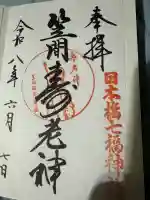 奉拝
日本橋七福神
寿老神
令和八年六月七日